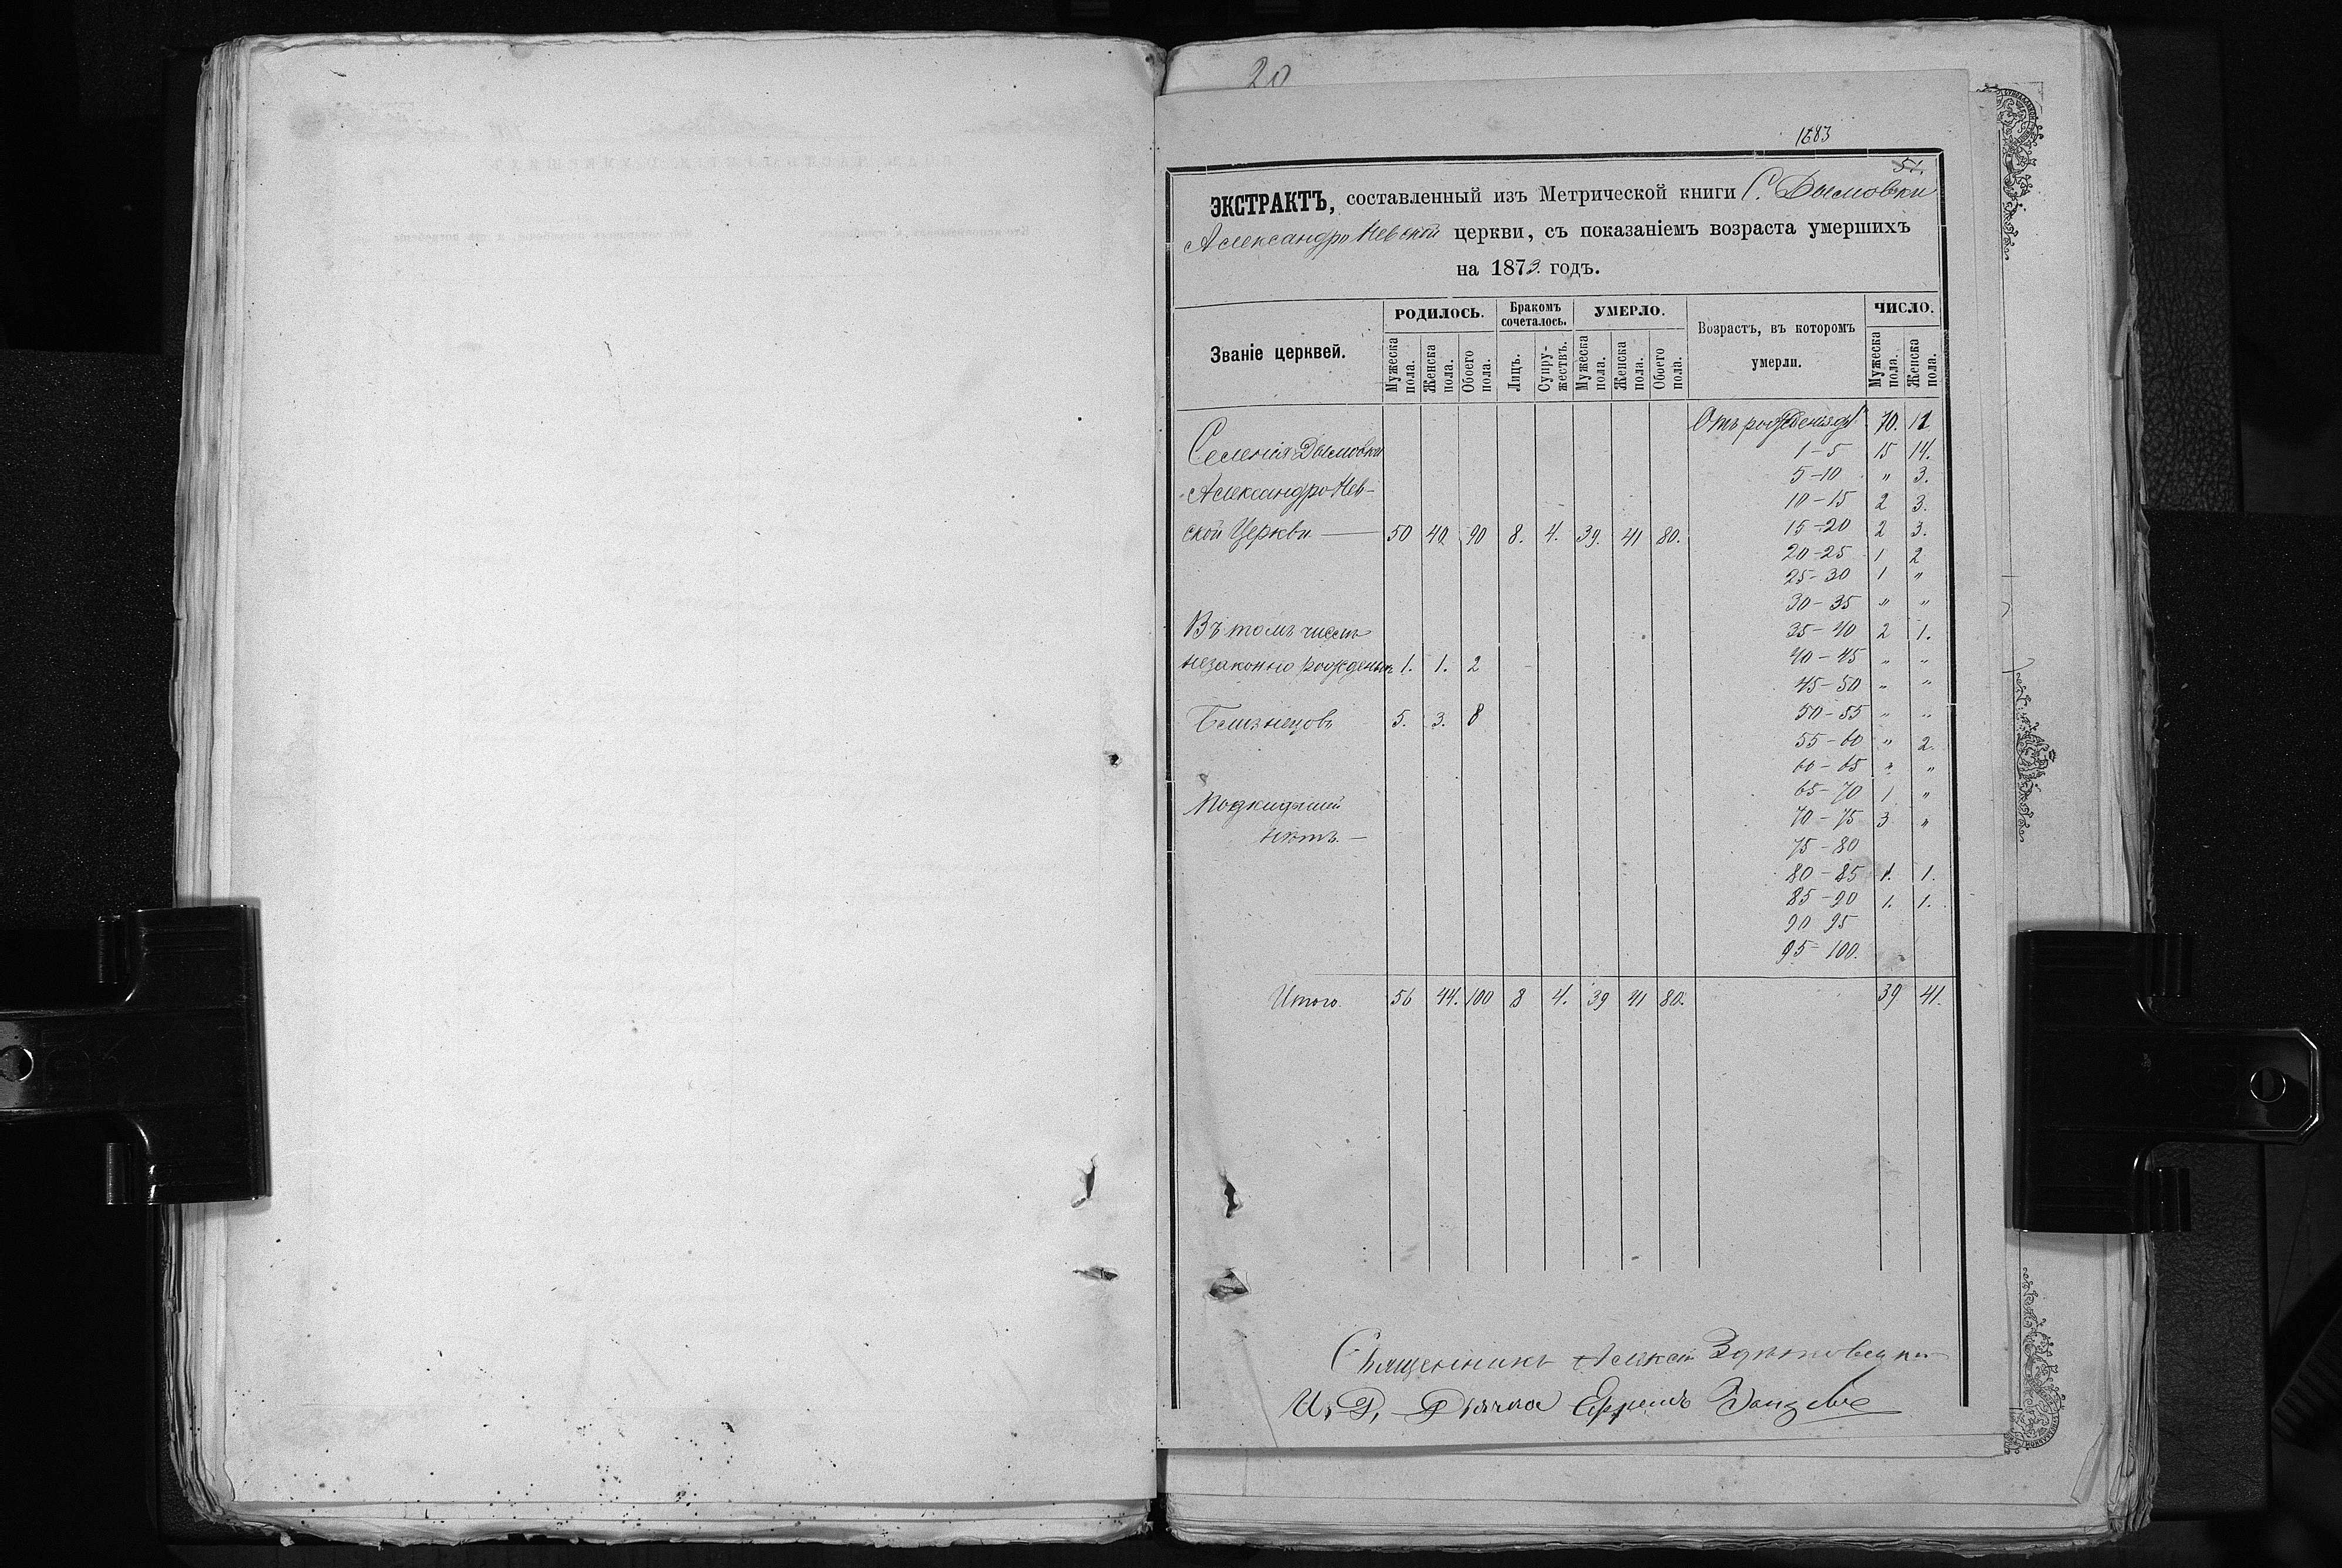 20
1683
51.
ЭКСТРАКТЪ, составленный изъ Метрической книги С. Дымовки
Александро Невской церкви, съ показаніемъ возраста умершихъ
на 1873 годъ.
Званіе церквей. РОДИЛОСЬ. Бракомъ сочеталось. УМЕРЛО. Возрастъ, въ которомъ умерли. ЧИСЛО.
Мужеска пола. Женска пола. Обоего пола. Лицъ. Супружествъ. Мужеска пола. Женска пола. Обоего пола. Мужеска пола. Женска пола.
Отъ рожденія до 1 10. 11
Селенія Дымовки 1-5 15 14.
5-10 " 3.
Александро Нев- 10-15 2 3.
ской Церкви — 50 40 90 8. 4. 39. 41 80. 15-20 2 3.
20-25 1 2
25-30 1 "
30-35 " "
Въ томъ числѣ 35-40 2 1.
незаконно рожденыхъ 1. 1. 2 40-45 " "
45-50 " "
Близнецовъ 5. 3. 8 50-55 " "
55-60 " 2.
60-65 " "
Подкидышей 65-70 1. "
70-75 3 "
нѣтъ. — 75-80
80-85 1. 1.
85-90 1. 1.
90 95
95-100.
Итого. 56 44. 100 8 4. 39 41 80. 39 41.
Священникъ
И. Д. Дьячка Ефремъ